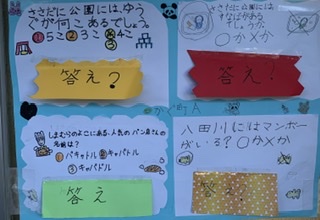 ささだに公園には、ゆう
ぐが何こあるでしょう。
①5こ②3こ③4こ
答え?
ささだに公園には
すなばがある
でしょうか
○か×か
答え!
かぐ町A
しまむらのよこにある、人気のパン屋さんの
名前は?
①パキャトル②キャパトル
③キャパドル
答え
八田川にはマンボー
がいる?○か×か
答え